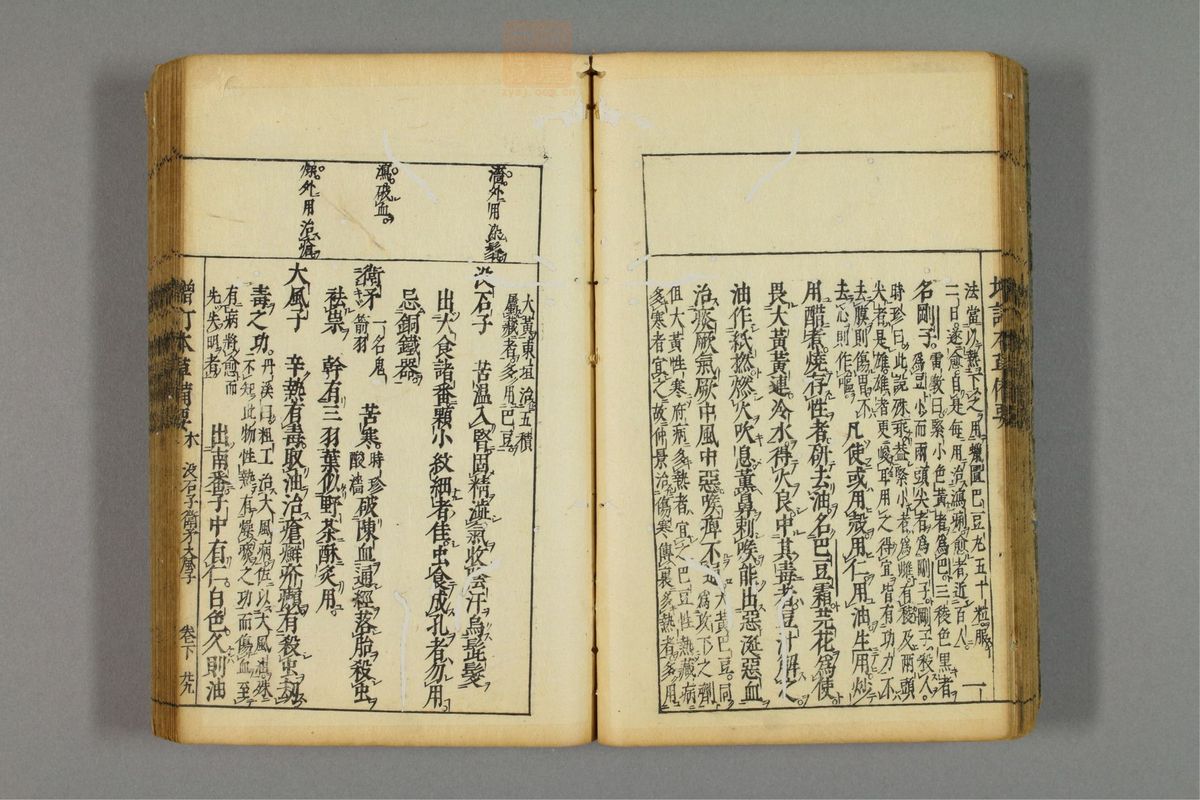 法當以熱下之用蠟匱巴豆丸五十粒服
二日遂愈自是每用治瀉痢愈者近百人
名剛子雷斅曰緊小色黃者為巴三稜色黑者
為豆小而兩頭尖者為剛子剛子殺人
時珍曰此說殊乖蓋緊小者為雌有稜及兩頭
尖者是雄雄者更峻耳用之得宜皆有功力不
去膜則傷胃不
去心則作嘔
凡使或用殼用仁用油生用炒
用醋煮燒存性者研去油名巴豆霜芫花為使
畏大黃黃連冷水得火良中其毒者豆汁解之
油作紙撚燃火吹息薰鼻刺喉能出惡涎惡血
治痰厥氣厥中風中惡喉痺不通
大黃巴豆同
為攻下之劑
但大黃性寒府病多熱者宜之巴豆性熱藏病
多寒者宜之故仲景治傷寒傳裏多熱者多用
大黃東垣治五積
屬藏者多用巴豆
濇外用染鬚
沒石子 苦溫入腎固精濇氣收陰汗烏髭髮
出大食諸番顆小紋細者佳虫食成孔者勿用
忌銅鐵器
瀉破血
衛矛
一名鬼
箭羽
苦寒
時珍
酸濇
破陳血通經落胎殺虫
祛祟 幹有三羽葉似野茶酥炙用
燥外用治瘡
大風子 辛熱有毒取油治瘡癬疥癩有殺虫劫
毒之功丹溪曰粗工治大風病佐以大風油殊
不知此物性熱有燥痰之功而傷血至
有病將愈而
先失明者
出南番子中有仁白色久則油
增訂本草備要
木 沒石子 衛矛 大風子
卷下 廿九
增訂本草備要